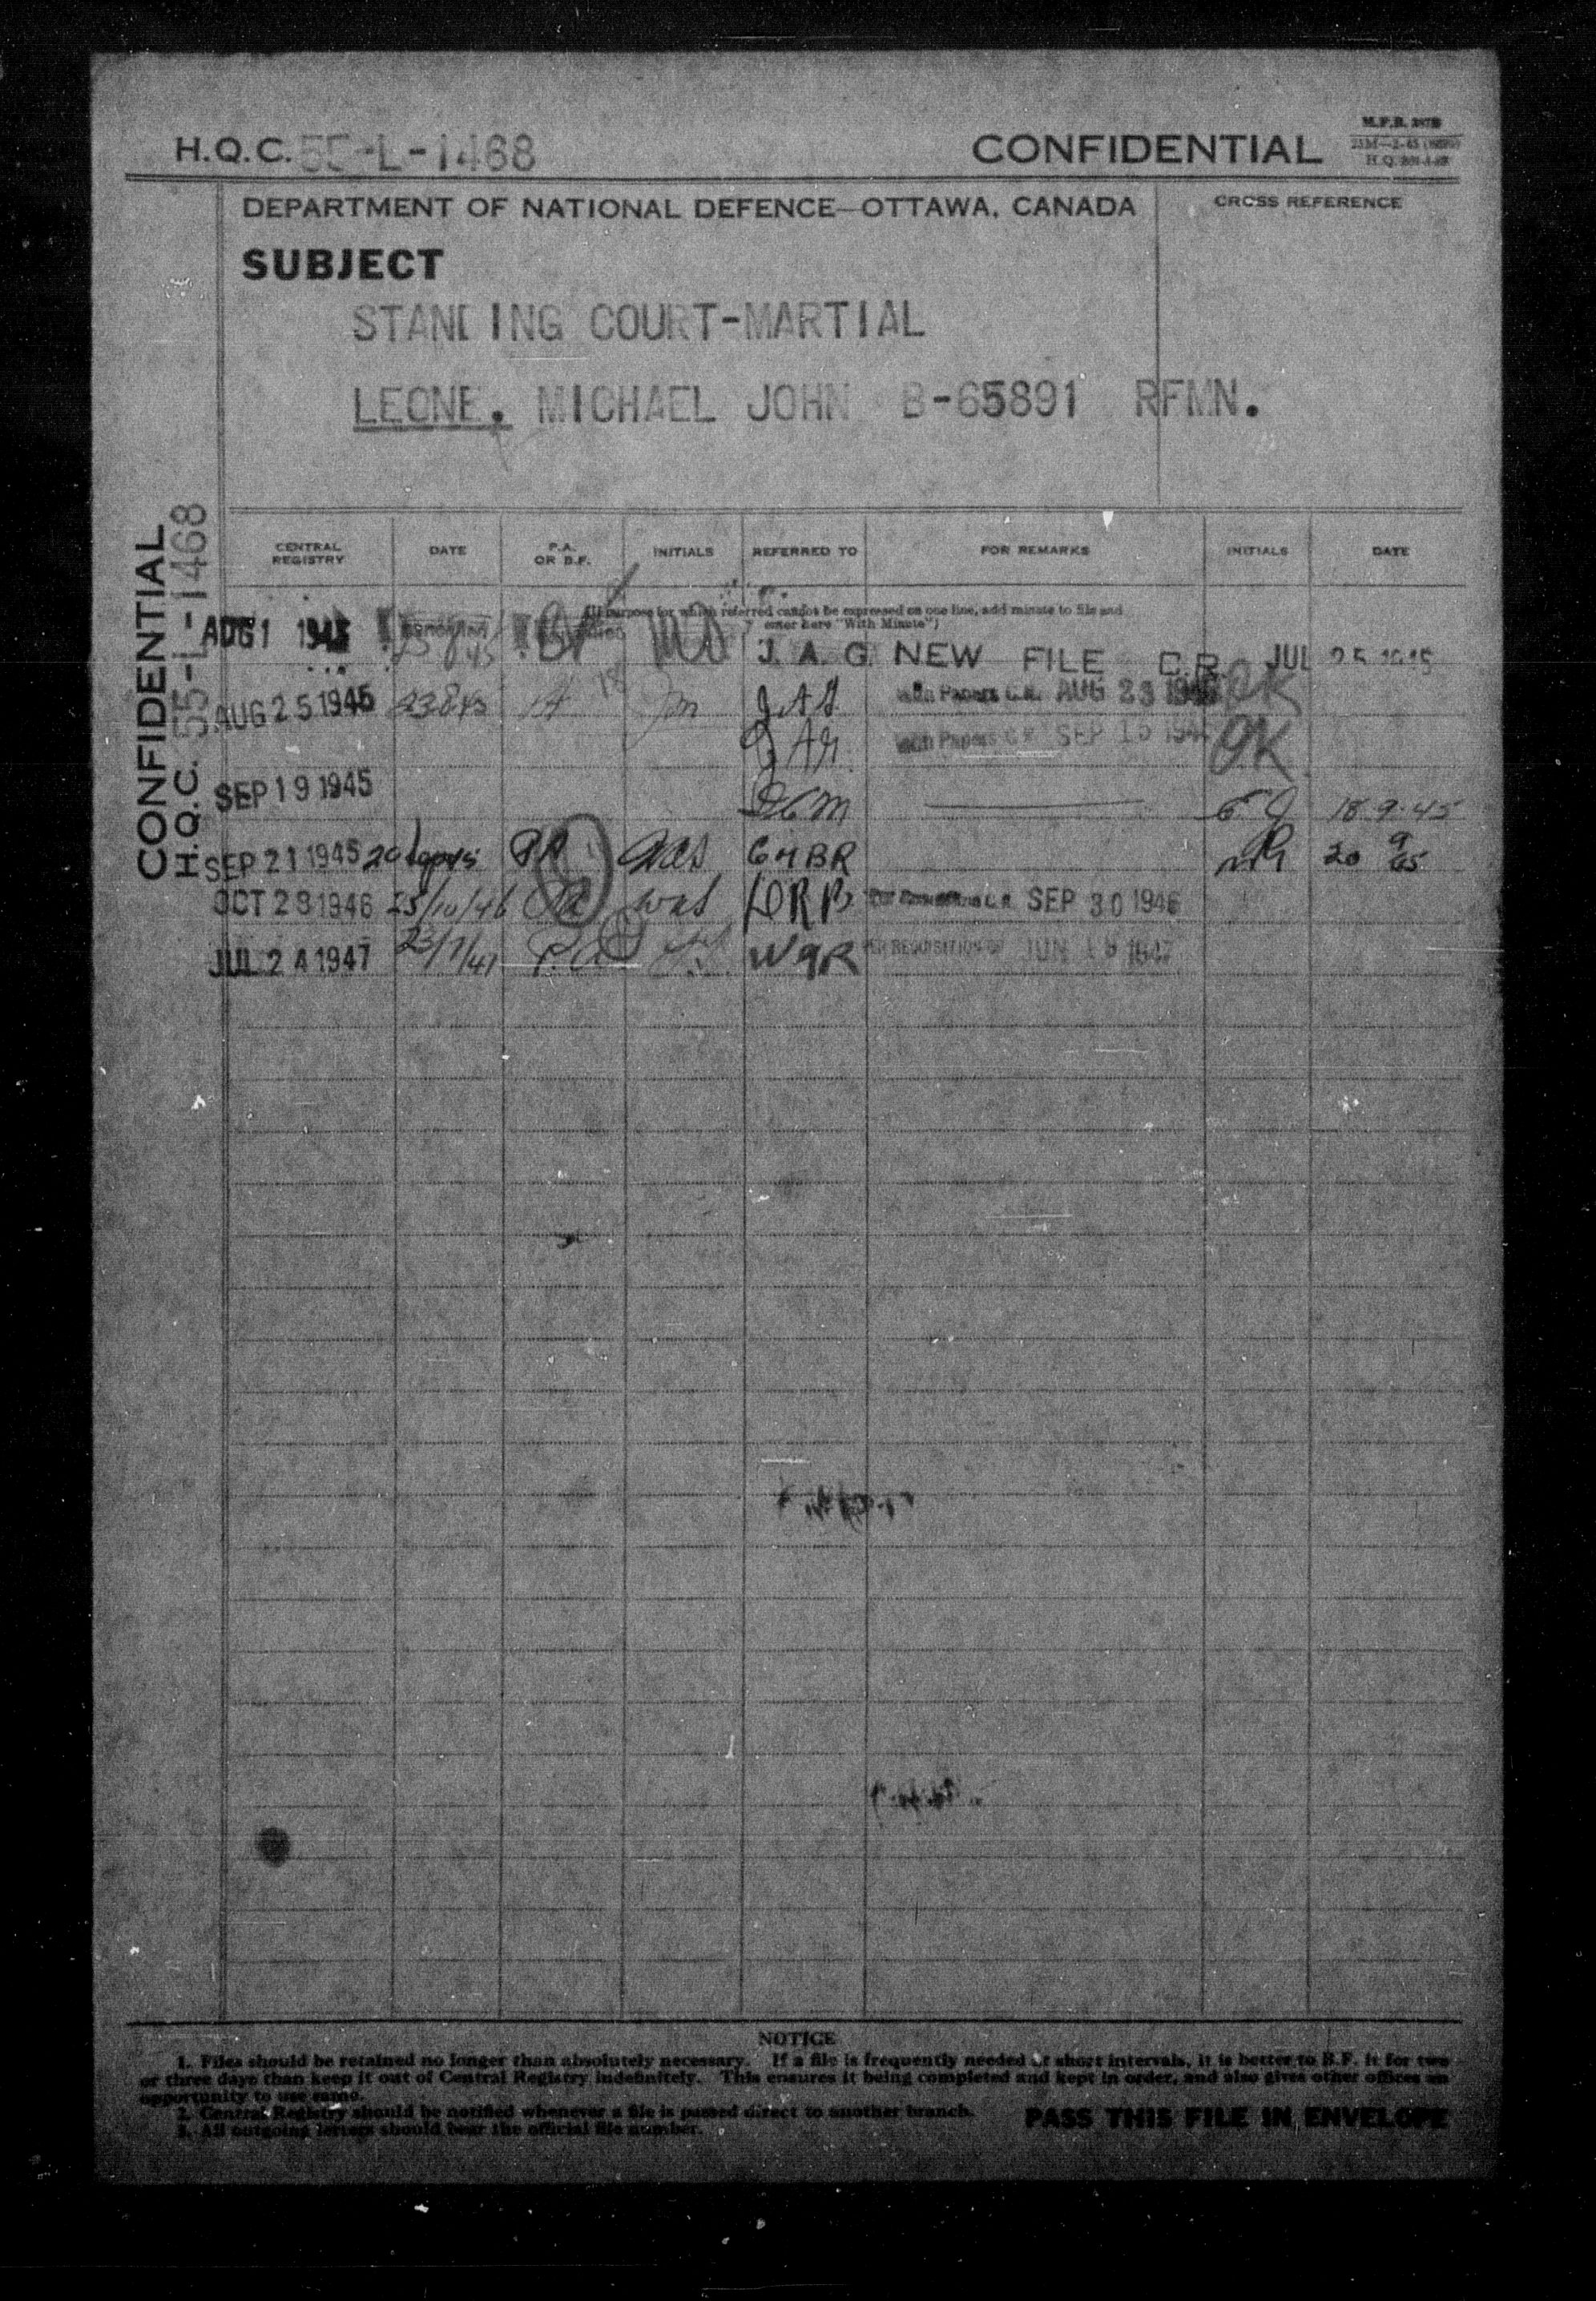 H.Q.C. 55-L-1468 CONFIDENTIAL
H.Q.
DEPARTMENT OF NATIONAL DEFENCE—OTTAWA, CANADA
CROSS REFERENCE
SUBJECT
STANDING COURT-MARTIAL
LEONE, MICHAEL JOHN B-65891 RFMN.
CONFIDENTIAL
H.Q.C. 55-L-1468
CENTRAL REGISTRY DATE P.A. OR B.F. INITIALS REFERRED TO FOR REMARKS INITIALS DATE
(If purpose for which referred cannot be expressed on one line, add minute to file and
enter here "With Minute")
AUG 1 1945 J. A. G. NEW FILE C.R. JUL 25 1945
AUG 25 1945 23 8 45 JAG With Papers C.R. AUG 23 1945 OK
JAG With Papers C.R. SEP 15 194 OK
SEP 19 1945 18-9-45
SEP 21 1945 PA GMBR 20 9/45
OCT 28 1946 25/10/46 PA was DRB SEP 30 1946
JUL 24 1947 23/7/47 P.A. WSR PER REQUISITION JUN 18 1947
NOTICE
1. Files should be retained no longer than absolutely necessary. If a file is frequently needed at short intervals, it is better to B.F. it for two
or three days than keep it out of Central Registry indefinitely. This ensures it being completed and kept in order, and also gives other offices an
opportunity to use same.
2. Central Registry should be notified whenever a file is passed direct to another branch.
3. All outgoing letters should bear the official file number.
PASS THIS FILE IN ENVELOPE